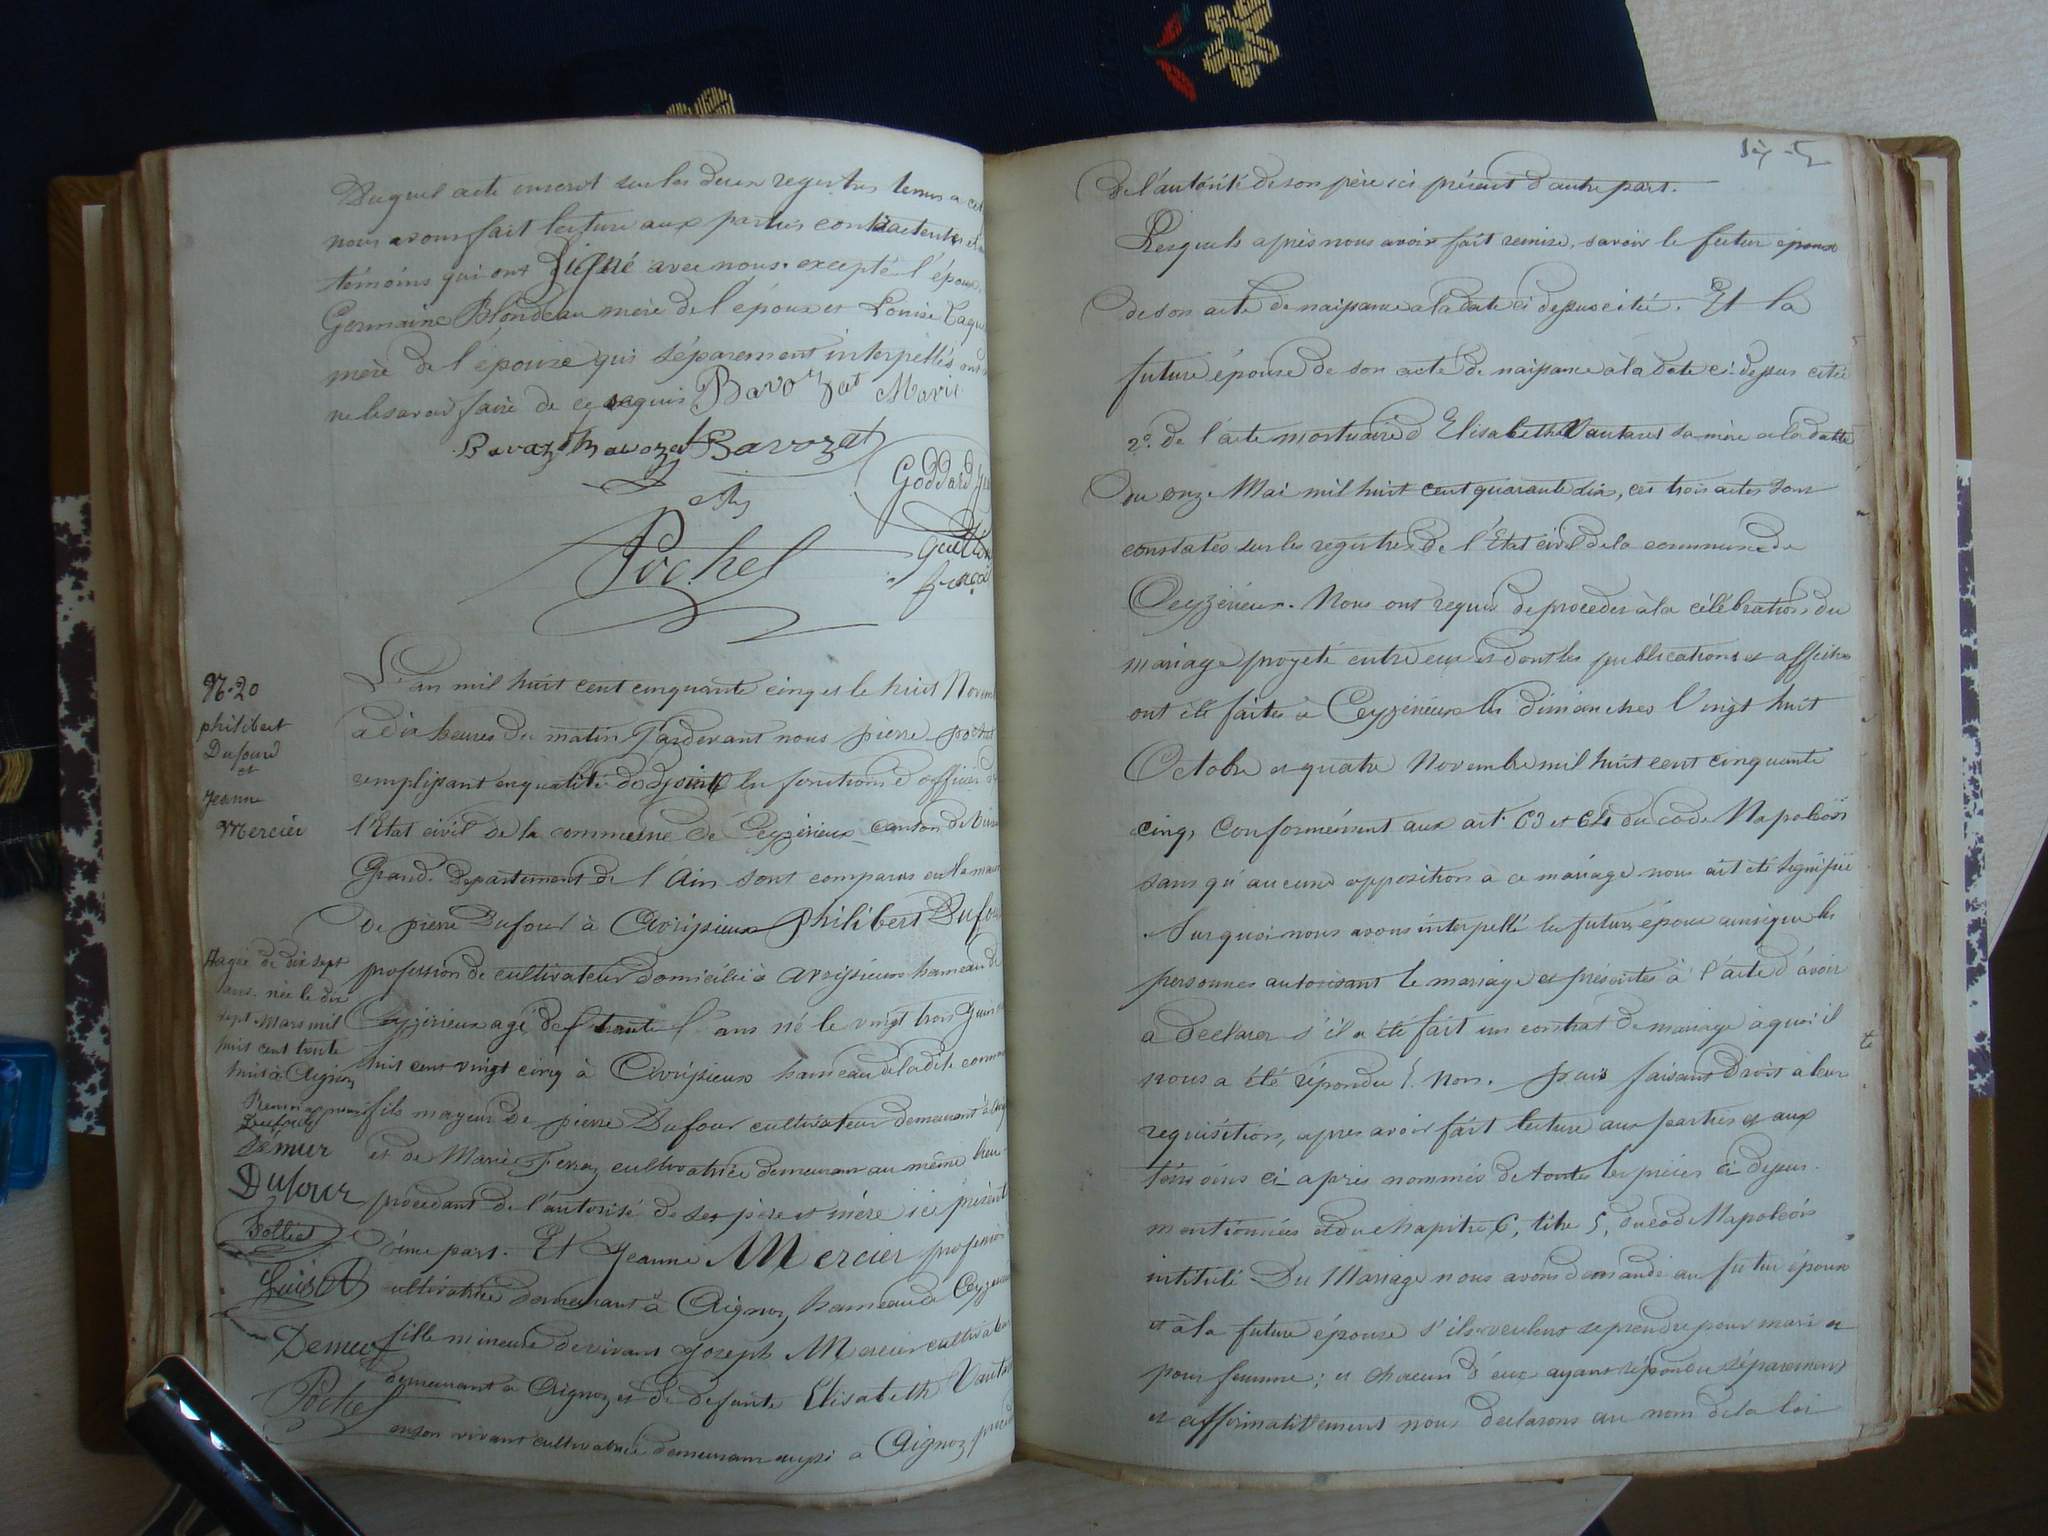 Duquel acte inscrit sur les deux registres tenus a cet
nous avons fait lecture aux parties contractentes et
témoins qui ont signé avec nous excepté l'épouse
Germaine Blondeau mère de l'époux et Louise
mère de l'épouse qui séparement interpellés ont
ne le savoir faire de ce requis Bavozat Marie
Bavozat Bavozat Bavozat
Goddard
Guillon
françois
Pochet
N. 20
philibert
Dufour
et
Jeanne
Mercier
L'an mil huit cent cinquante cinq et le huit Novem
a dix heures du matin Pardevant nous pierre pochet
remplissant en qualité d'adjoint les fonctions d'officier de
l'Etat civil de la commune de Ceyzérieux canton de Virieu
Grand Département de l'Ain sont comparus en la maison
de pierre Dufour à Avrissieux Philibert Dufour
profession de cultivateur domicilié à Avrissieux hameau de
Ceyzérieux agé de trente ans né le vingt trois Juin
huit cent vingt cinq à Avrissieux hameau de la dite commune
fils mageur de pierre Dufour cultivateur demeurant à
et de Marie Ferraz cultivatrice demeurant au même lieu
procédant de l'autorité de ses père et mère ici présents
d'une part. Et Jeanne Mercier profession
cultivatrice demeurant à Aignoz hameau de Ceyzérieux
fille mineure de vivant Joseph Mercier cultivateur
demeurant à Aignoz et de defunte Elisabeth Vautaret
en son vivant cultivatrice demeurant aussi a Aignoz procéd
Hagée de dix sept
ans née le dix
sept Mars mil
huit cent trente
huit à Aignoz
Dufour
Démur
Dufour
Bollier
Demeur
Pochet
de l'autorité de son père ici présent d'autre part.
Lesquels après nous avoir fait remise, savoir le futur époux
de son acte de naissance a la date ci dessus citée. Et la
future épouse de son acte de naissance à la date ci-dessus citée
2° de l'acte mortuaire d'Elisabeth Vautaret sa mère a la datte
du onze Mai mil huit cent quarante dix, ces trois actes sont
constatés sur les registres de l'Etat civil de la commune de
Ceyzérieux. Nous ont requis de proceder à la célébration du
mariage projeté entre eux et dont les publications et affiches
ont été faites à Ceyzérieux les dimanches Vingt huit
Octobre et quatre Novembre mil huit cent cinquante
cinq, Conformément aux art. 63 et 64 du code Napoléon
sans qu'aucune opposition à ce mariage nous ait été signifiée
Sur quoi nous avons interpellé les futurs époux ainsi que les
personnes autorisant le mariage et présentes à l'acte d'avoir
a declarer s'il a été fait un contrat de mariage a quoi il
nous a été répondu : Non. puis faisant Droit a leur
requisition, apres avoir fait lecture aux parties et aux
témoins ci-après nommés de toutes les pièces ci dessus
mentionnées et du chapitre 6, titre 5, du code Napoléon
intitulé Du Mariage nous avons demandé au futur époux
et à la future épouse s'ils veulent se prendre pour mari et
pour femme ; et chacun d'eux ayant répondu séparement
et affirmativement nous déclarons au nom de la loi